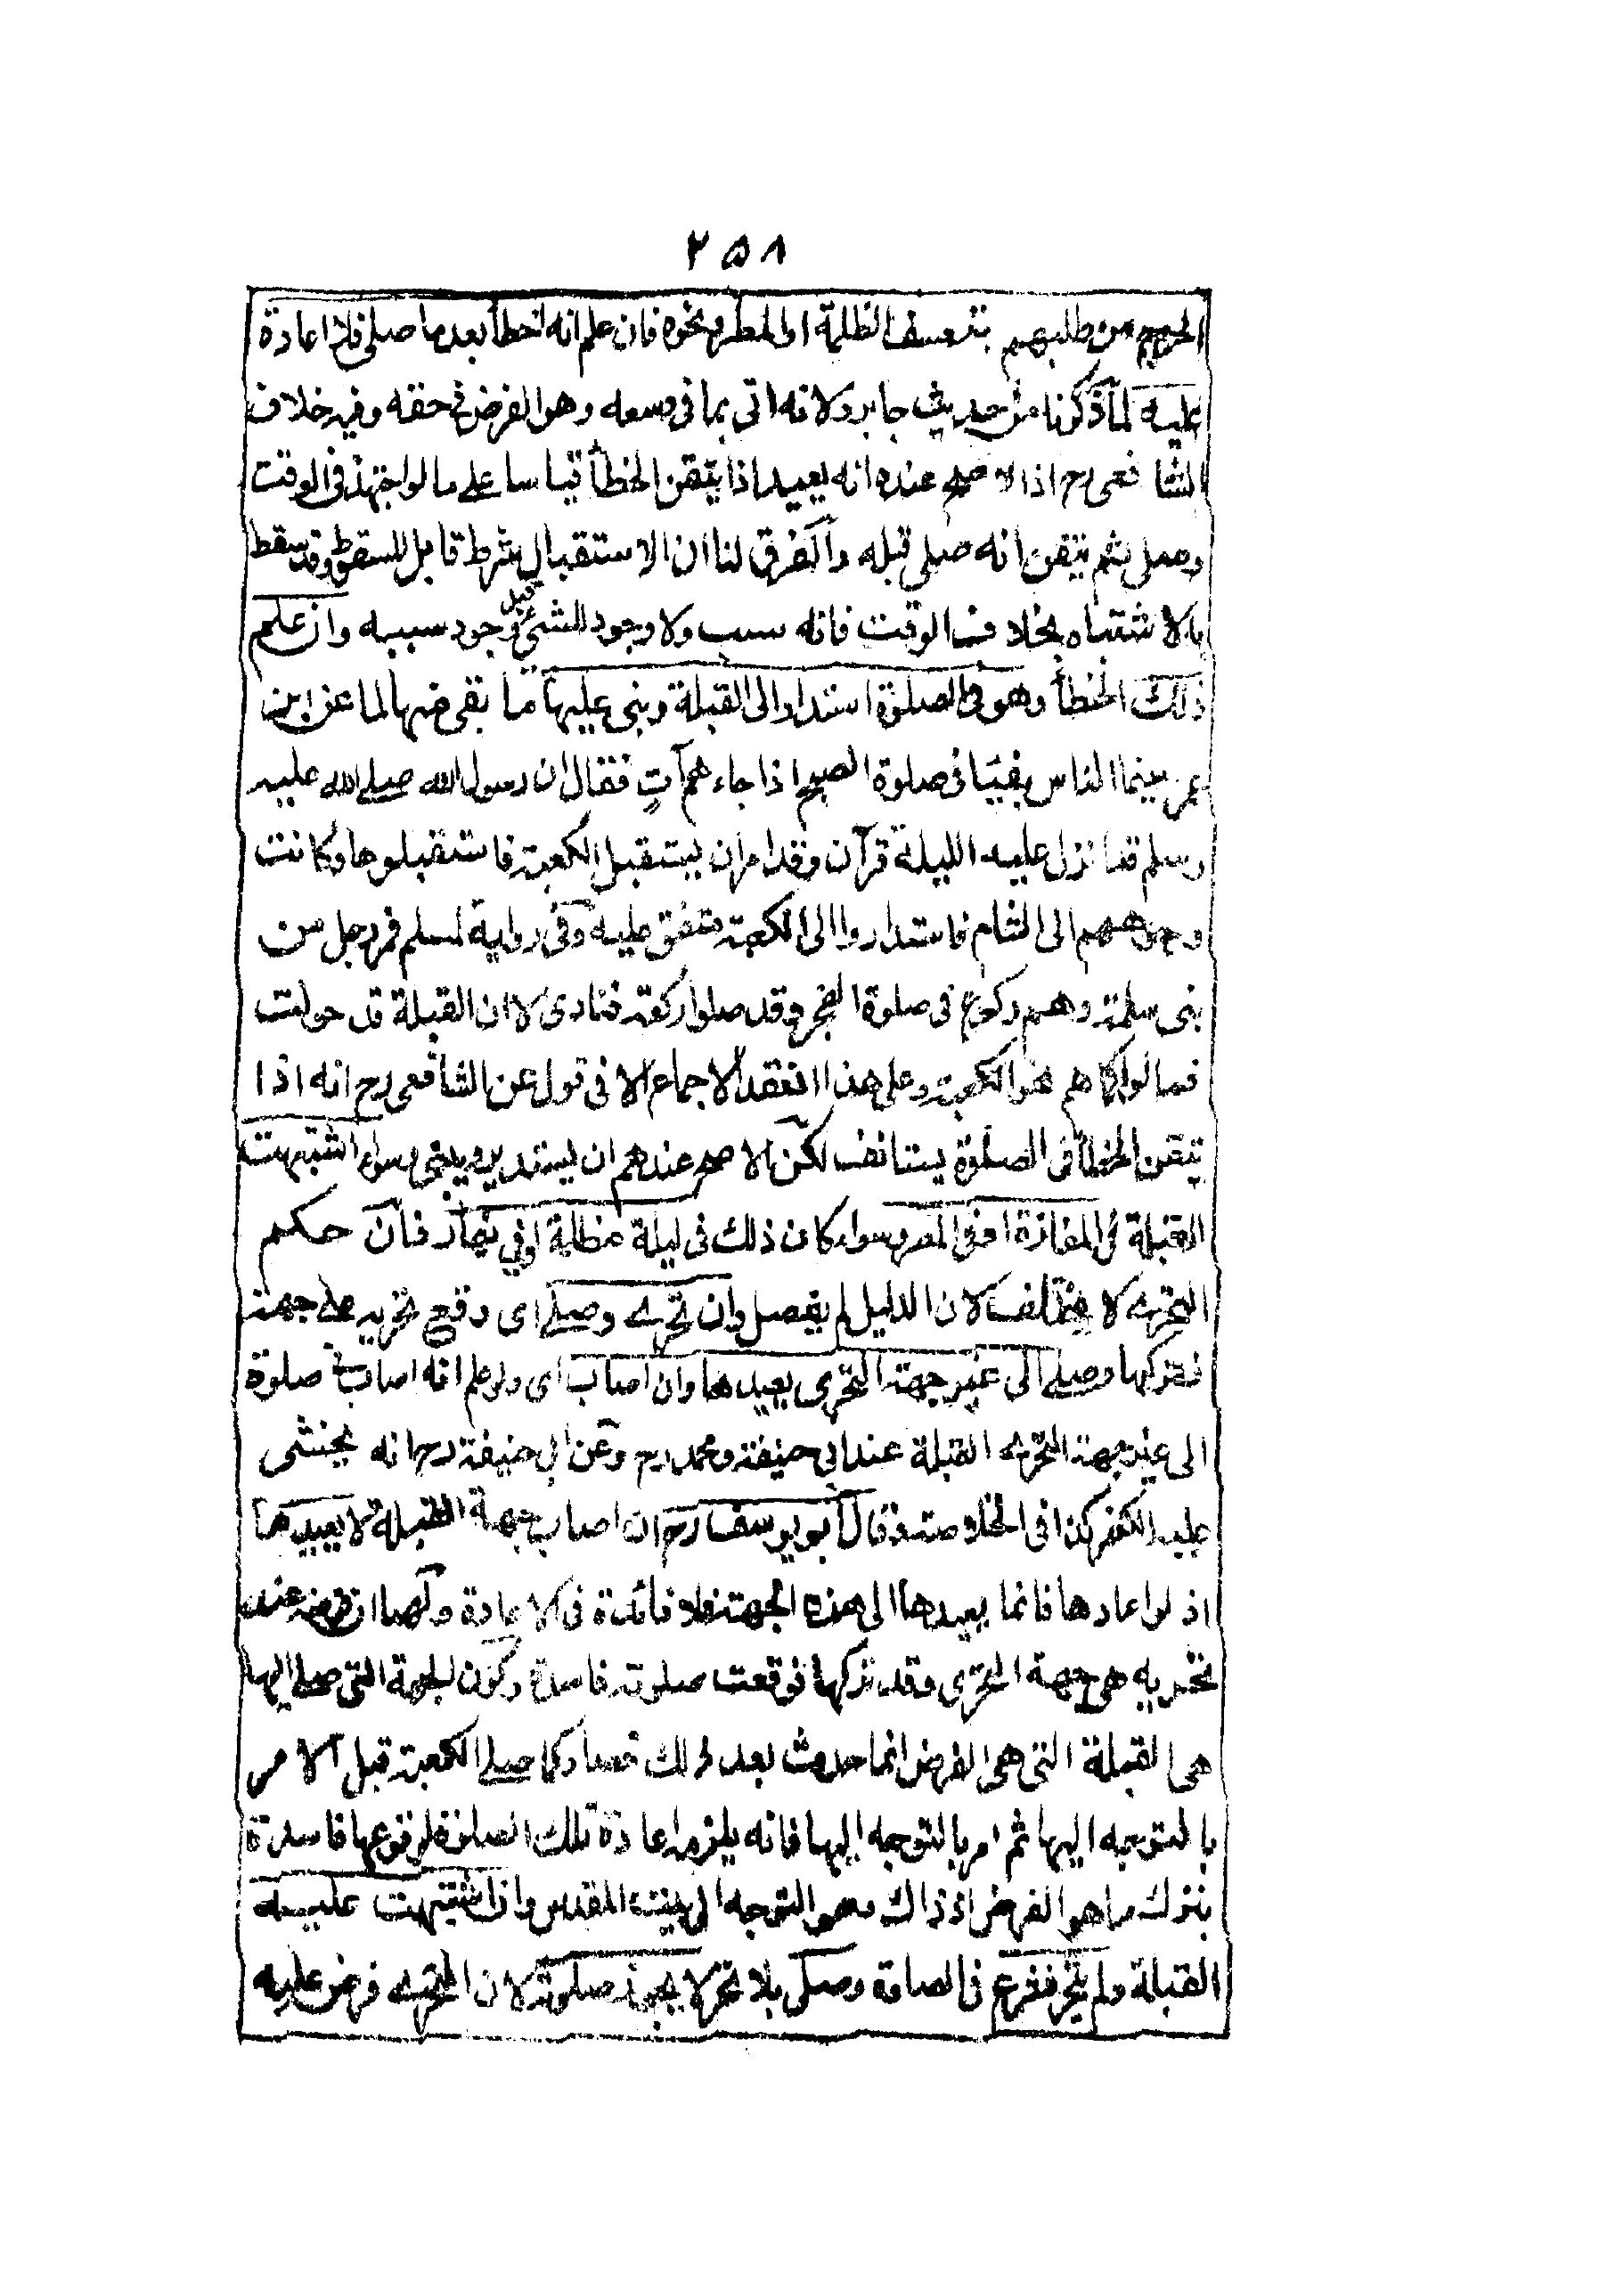 ٢٥٨
الحرج من طلبهم بتعسف الظلمة او المطر ونحوه فان علم انه اخطأ بعد ما صلى فلا اعادة
عليه لما ذكرنا من حديث جابر ولانه اتى بما فى وسعه وهو الفرض فى حقه وفيه خلاف
الشافعى رح اذ الاصح عنده انه يعيد اذا تيقن الخطأ قياسا على ما لو اجتهد فى الوقت
وصلى ثم تيقن انه صلى قبله والفرق لنا ان الاستقبال شرط قابل للسقوط وقد سقط
بالاشتباه بخلاف الوقت فانه سبب ولا وجود للشئ قبل وجود سببه وان علم
ذلك الخطأ وهو فى الصلوة استدار الى القبلة وبنى عليها ما بقى منها لما عن ابن
عمر بينما الناس بقبا فى صلوة الصبح اذا جاءهم آتٍ فقال ان رسول الله صلے الله عليه
وسلم قد انزل عليه الليلة قرآن وقد امر ان يستقبل الكعبة فاستقبلوها وكانت
وجوههم الى الشام فاستداروا الى الكعبة متفق عليه وفى رواية لمسلم فمر رجل من
بنى سلمة وهم ركوع فى صلوة الفجر وقد صلوا ركعة فنادى الا ان القبلة قد حولت
فمالوا كما هم نحو الكعبة وعلى هذا انعقد الاجماع الا فى قول عن الشافعى رح انه اذا
تيقن الخطأ فى الصلوة يستانف لكن الاصح عندهم ان يستدير ويبنى سواء اشتبهت
القبلة فى المفازة او فى المصر وسواء كان ذلك فى ليلة مظلمة او فى نهار فان حكم
التحرى لا يختلف لان الدليل لم يفصل وان تحرى وصلے اى وقع تحريه على جهة
فتركها وصلے الى غير جهة التحرى يعيدها وان اصاب اى ولو علم انه اصاب فى صلوة
الى غير جهة التحرى القبلة عند ابى حنيفة ومحمد رح وعن ابى حنيفة رح انه يخشى
عليه الكفر كذا فى الخلاصة وقال ابو يوسف رح ان اصاب جهة القبلة لا يعيدها
اذ لو اعادها فانما يعيدها الى هذه الجهة فلا فائدة فى الاعادة ولهما ان فرضه عند
تحريه هى جهة التحرى وقد تركها فوقعت صلوته فاسدة وكون الجهة التى صلے اليها
هى القبلة التى هى الفرض انما حدث بعد ذلك فصار كما صلے الى الكعبة قبل الامر
بالتوجه اليها ثم امر بالتوجه اليها فانه يلزمه اعادة تلك الصلوة لوقوعها فاسدة
بترك ما هو الفرض اذ ذاك وهو التوجه الى بيت المقدس واذا اشتبهت عليه
القبلة ولم يتحر فشرع فى الصلوة وصلى بلا تحر لا يجوز صلوته لان التحرى فرض عليه